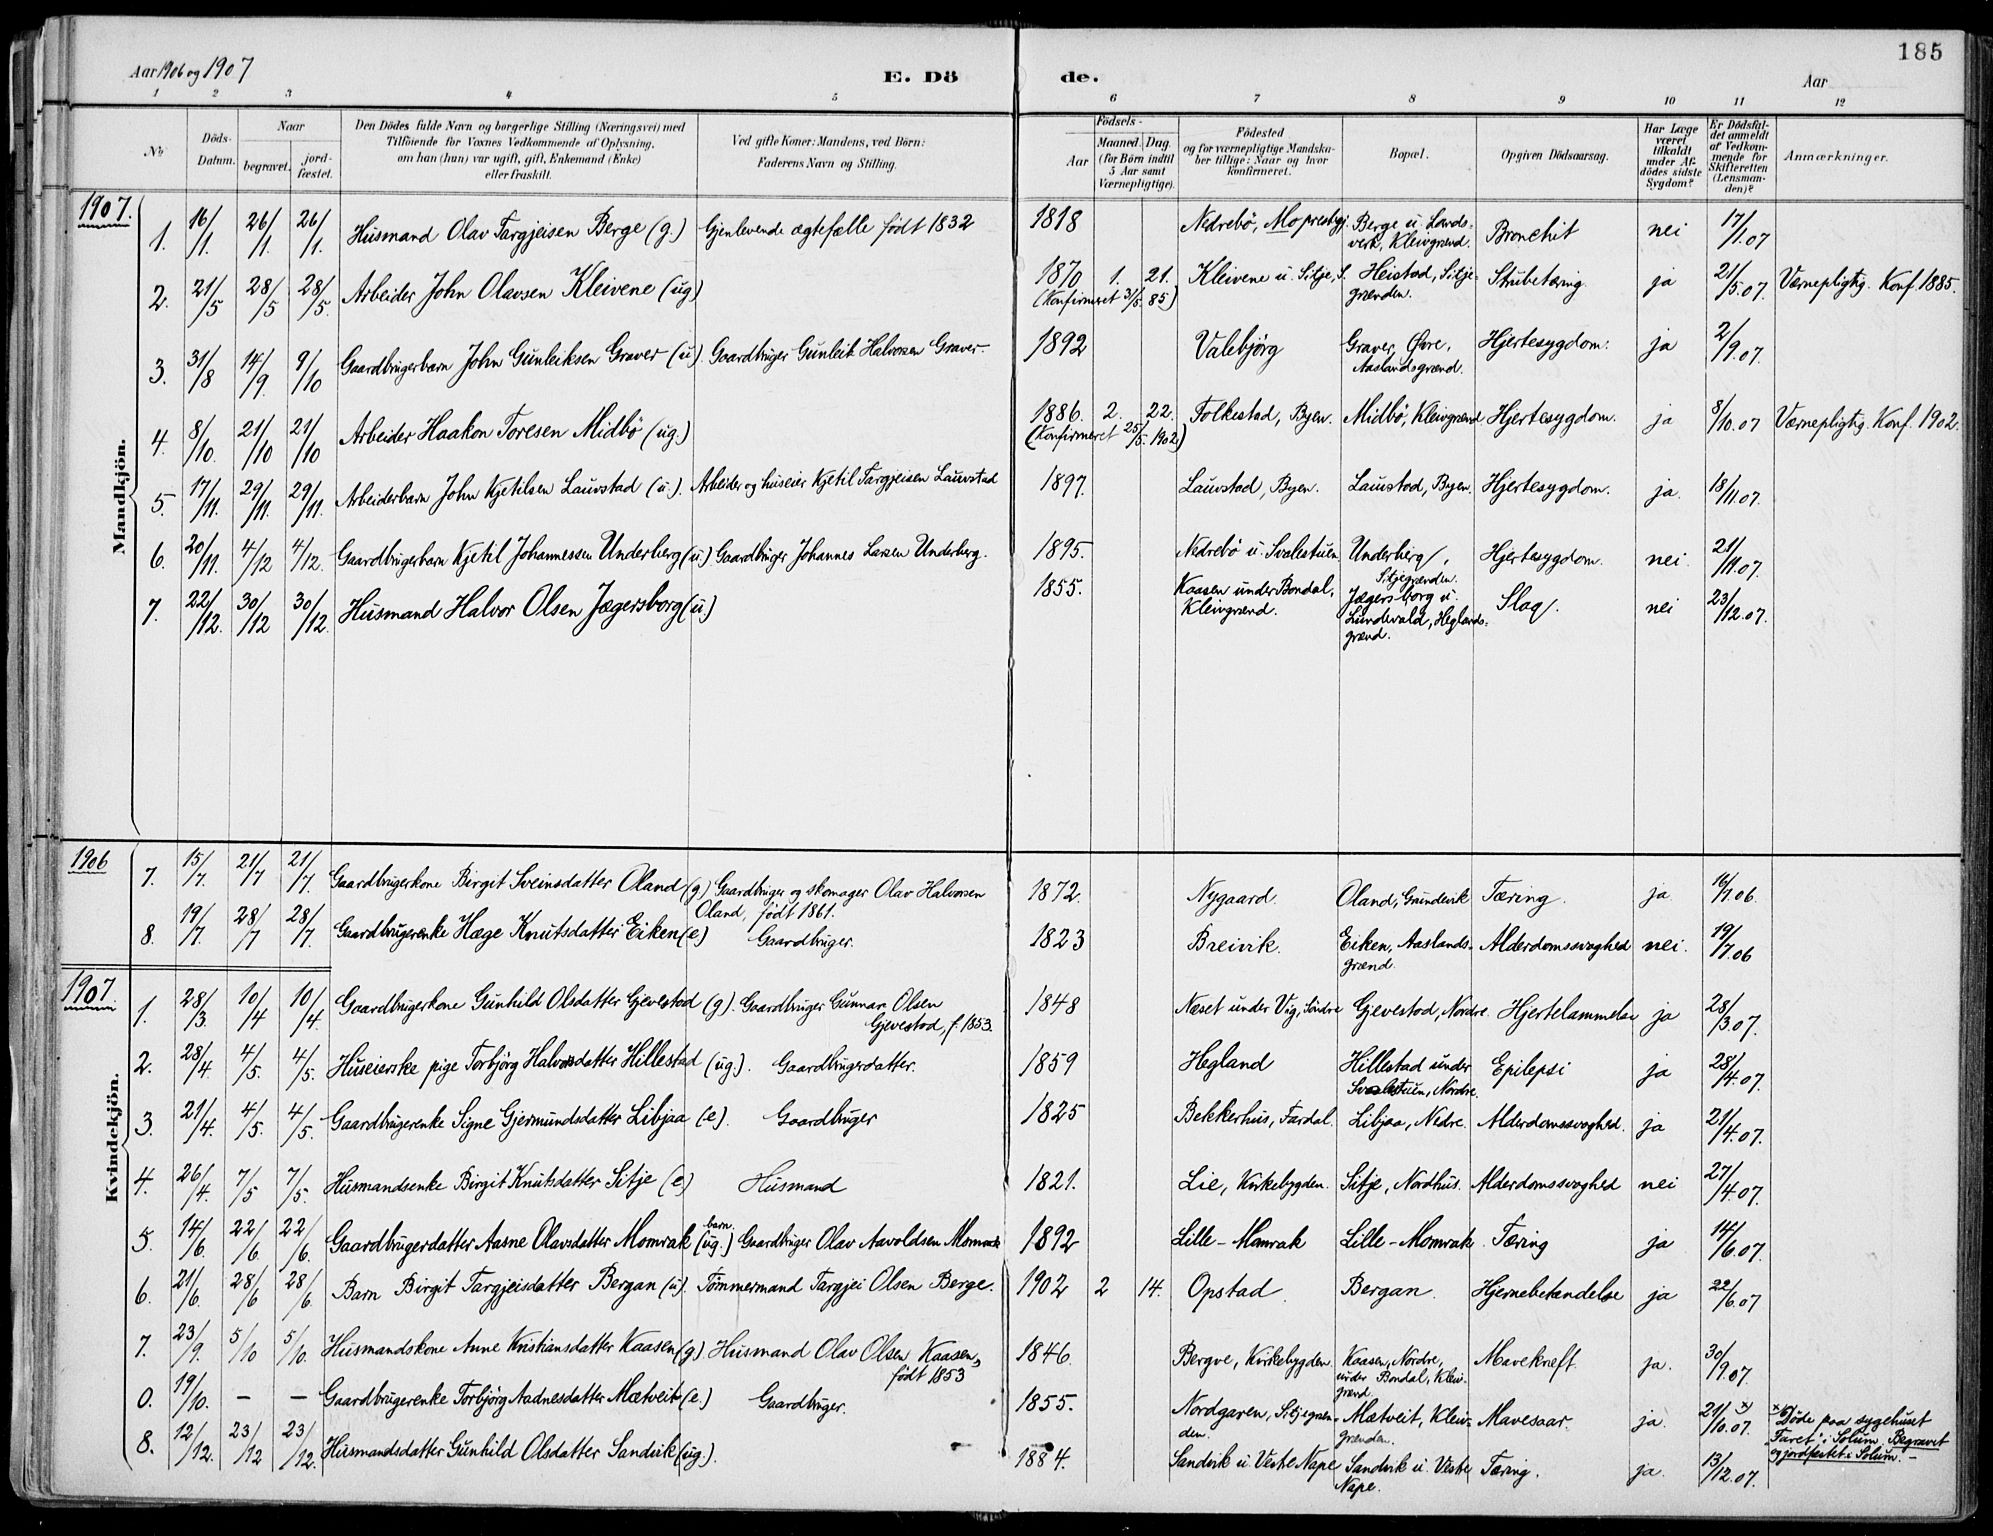 185
Aar 1906 og 1907 E. Dö de. Aar
1 2 3 4 5 6 7 8 9 10 11 12
№ Döds-Datum. Naar begravet. jordfæstet. Den Dödes fulde Navn og borgerlige Stilling (Næringsvei) med Tilföiende for Voxnes Vedkommende af Oplysning, om han (hun) var ugift, gift, Enkemand (Enke) eller fraskilt. Ved gifte Koner: Mandens, ved Börn: Faderens Navn og Stilling. Födsels- Aar Maaned. Dag. (for Börn indtil 5 Aar samt Værnepligtige). Födested og for værnepligtige Mandskaber tillige: Naar og hvor konfirmeret. Bopæl. Opgiven Dödsaarsag. Har Læge været tilkaldt under Afdödes sidste Sygdom? Er Dödsfaldet anmeldt af Vedkommende for Skifteretten (Lensmanden)? Anmærkninger.
Mandkjön.
1907.
1. 16/1. 26/1. 26/1. Husmand Olav Targjeisen Berge (g.) Gjenlevende ægtefælle født 1832 1818 Nedrebö, Mo presbgj. Berge u. Lavdsverk, Kleivgrænd. Bronchit nei 17/1.07
2. 21/5 28/5 28/5. Arbeider John Olavsen Kleivene (ug) 1870 1. 21. (Konfirmeret 31/5. 85) Kleivene u. Sitje, S. Heistad, Sitjegrænden. Strubetæring. ja 21/5.07. Værnepligtig. Konf. 1885.
3. 31/8 14/9. 9/10 Gaardbrugerbarn John Gunleiksen Graver (u). Gaardbruger Gunleik Halvorsen Graver. 1892 Valebjørg Graver, Øvre, Aaslandsgrænd. Hjertesygdom. ja 2/9.07.
4. 8/10. 21/10 21/10 Arbeider Haakon Toresen Midbö (ug.) 1886. 2. 22. (Konfirmeret 25/5. 1902) Folkestad, Byen. Midbö, Kleivgrænd Hjertesygdom. ja 8/10.07 Værnepligtig. Konf. 1902.
5. 17/11. 29/11. 29/11. Arbeiderbarn John Kjetilsen Lauvstad (u.). Arbeider og huseier Kjetil Targjeisen Lauvstad 1897. Lauvstad, Byen. Lauvstad, Byen. Hjertesygdom. ja. 18/11.07.
6. 20/11. 4/12 4/12. Gaardbrugerbarn Kjetil Johannessen Underberg (u.) Gaardbruger Johannes Larsen Underberg. 1895. Nedrebö u. Svalestuen Underberg, Sitjegrænden. Hjertesygdom. nei. 21/11.07.
7. 22/12. 30/12 30/12. Husmand Halvor Olsen Jægersborg (u.) 1855. Kaasen under Bondal, Kleivgrænd. Jægersborg u. Lundevald, Heglandsgrænd. Slag. nei 23/12.07.
Kvindekjön.
1906
7. 15/7. 21/7 21/7. Gaardbrugerkone Birgit Sveinsdatter Oland (g) Gaardbruger og skomager Olav Halvorsen Oland, født 1861. 1872. Nygaard. Oland, Grundevik Tæring. ja 16/7.06.
8. 19/7. 28/7 28/7. Gaardbrugerenke Hæge Knutsdatter Eiken (e) Gaardbruger. 1823 Breivik. Eiken, Aaslandsgrænd. Alderdomssvaghed nei. 19/7.06
1907.
1. 28/3. 10/4 10/4. Gaardbrugerkone Gunhild Olsdatter Gjevestad (g). Gaardbruger Gunnar Olsen Gjevestad, f. 1853. 1848 Næset under Vig, Söndre Gjevestad, Nordre. Hjertelammelse ja 28/3.07.
2. 28/4. 4/5. 4/5. Huseierske pige Torbjörg Halvorsdatter Hillestad (ug.). Gaardbrugerdatter. 1859 Hegland Hillestad under Svalestuen, Nordre. Epilepsi ja 28/4.07.
3. 21/4. 4/5. 4/5. Gaardbrugerenke Signe Gjermundsdatter Libjaa (e). Gaardbruger 1825 Bekkerhus, Fardal. Libjaa, Nedre. Alderdomssvaghed. ja 21/4.07.
4. 26/4. 7/5 7/5. Husmandsenke Birgit Knutsdatter Sitje (e) Husmand 1821. Lie, Kirkebygden. Sitje, Nordhus. Alderdomssvaghed nei 27/4.07.
5. 14/6. 22/6 22/6. Gaardbrugerdatter Aasne Olavsdatter Momrak barn (ug.) Gaardbruger Olav Aavoldsen Momrak 1892 Lille-Momrak Lille-Momrak Tæring ja 14/6.07.
6. 21/6. 28/6 28/6. Barn Birgit Targjeisdatter Bergan (u). Tømmermand Targjei Olsen Berge. 1902 2 14. Opstad Bergan. Hjernebetændelse ja 22/6.07
7. 23/9. 5/10 5/10. Husmandskone Anne Kristiansdatter Kaasen (g) Husmand Olav Olsen Kaasen, født 1853 1846. Bergve, Kirkebygden. Kaasen, Nordre, under Bondal, Kleivgrænd. Mavekræft. ja. 30/9.07.
0. 19/10. — — Gaardbrugerenke Torbjörg Aadnesdatter Mætveit (e.) Gaardbruger. 1855. Nordgaren, Sitjegrænden. Mætveit, Kleivgrænden. Mavesaar. ja. 21/10.07. x) x) Døde paa sygehuset "Faret" i Solum. Begravet og jordfæstet i Solum. —
8. 12/12. 23/12 23/12. Husmandsdatter Gunhild Olsdatter Sandvik (ug.). 1884. Sandvik u. Vestre Nape Sandvik u. Vestre Nape. Tæring. ja. 13/12.07.